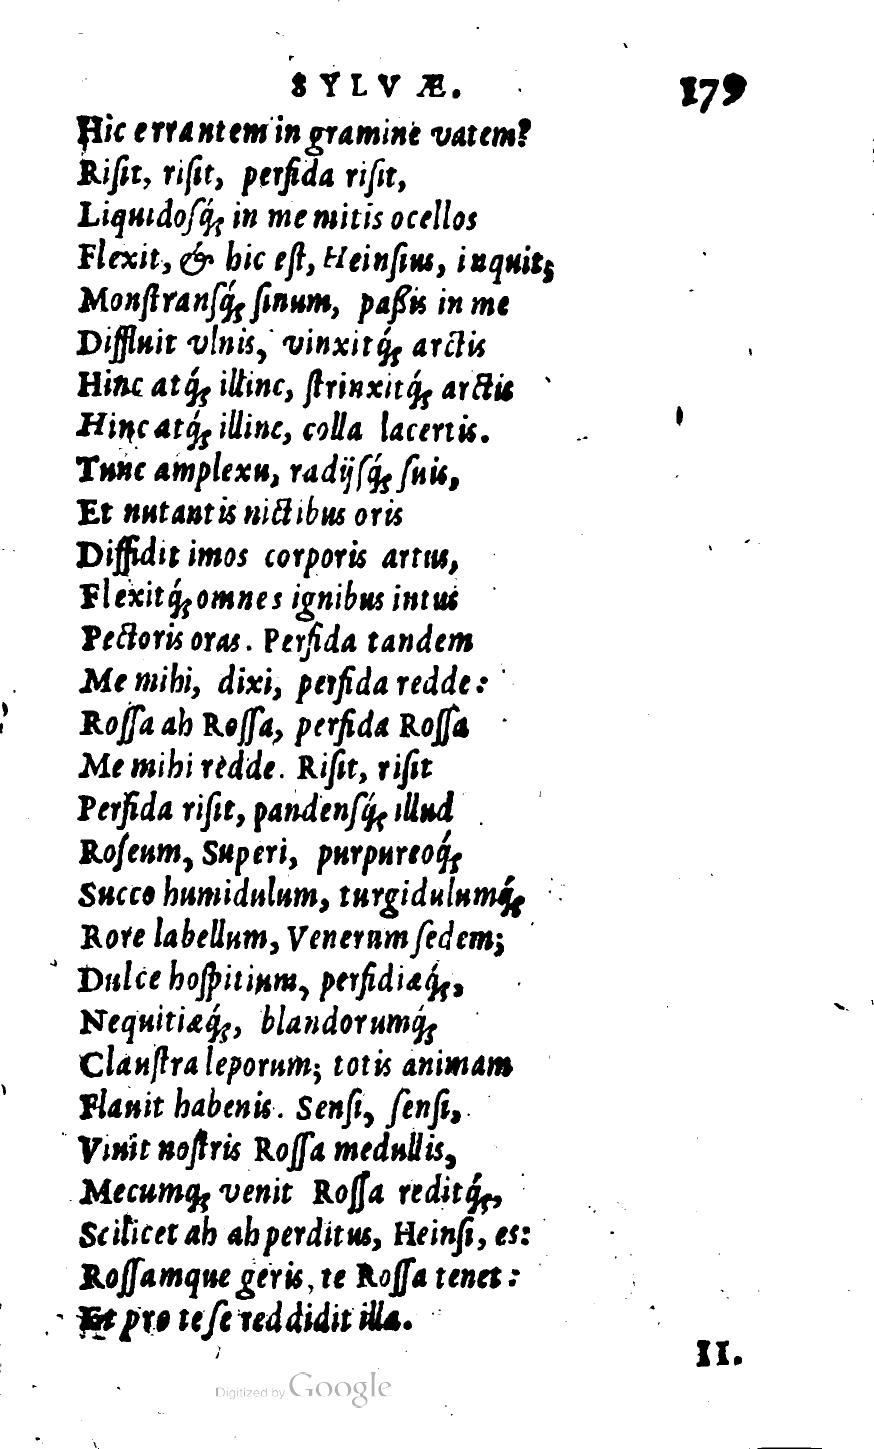 SYLVÆ. 179
Hic errantem in gramine vatem?
Riſit, riſit, perfida riſit,
Liquidoſq́; in me mitis ocellos
Flexit, & hic eſt, Heinſius, inquit;
Monſtranſq́; ſinum, paßis in me
Diffluit vlnis, vinxitq́; arctis
Hinc atq́; illinc, ſtrinxitq́; arctis
Hinc atq́; illinc, colla lacertis.
Tunc amplexu, radijſq́; ſuis,
Et nutantis nictibus oris
Diffidit imos corporis artus,
Flexitq́; omnes ignibus intus
Pectoris oras. Perfida tandem
Me mihi, dixi, perfida redde:
Roſſa ah Roſſa, perfida Roſſa
Me mihi redde. Riſit, riſit
Perfida riſit, pandenſq́; illud
Roſeum, Superi, purpureoq́;
Succo humidulum, turgidulumq́;
Rore labellum, Venerum ſedem;
Dulce hoſpitium, perfidiæq́;,
Nequitiæq́;, blandorumq́;
Clauſtra leporum; totis animam
Flauit habenis. Senſi, ſenſi,
Viuit noſtris Roſſa medullis,
Mecumq; venit Roſſa reditq́;,
Scilicet ah ah perditus, Heinſi, es:
Roſſamque geris, te Roſſa tenet:
Et pro te ſe reddidit illa.
II.
Digitized by Google